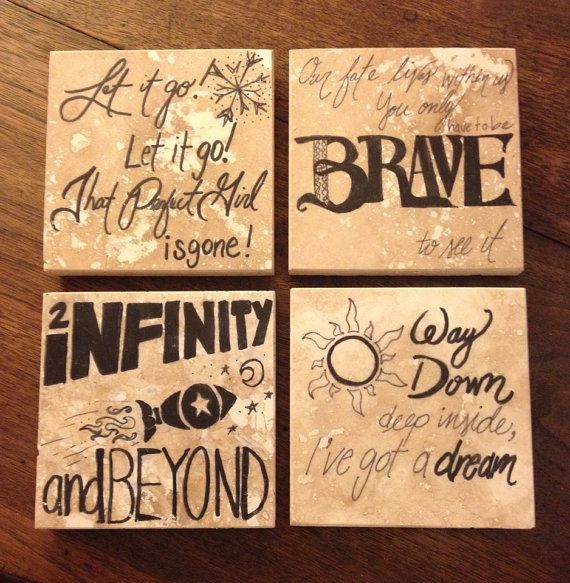 Let it go!
Let it go!
That Perfect Girl
is gone!
Our fate lives within us
You only
have to be
BRAVE
to see it
2
iNFINITY
and BEYOND
Way
Down
deep inside,
I've got a dream